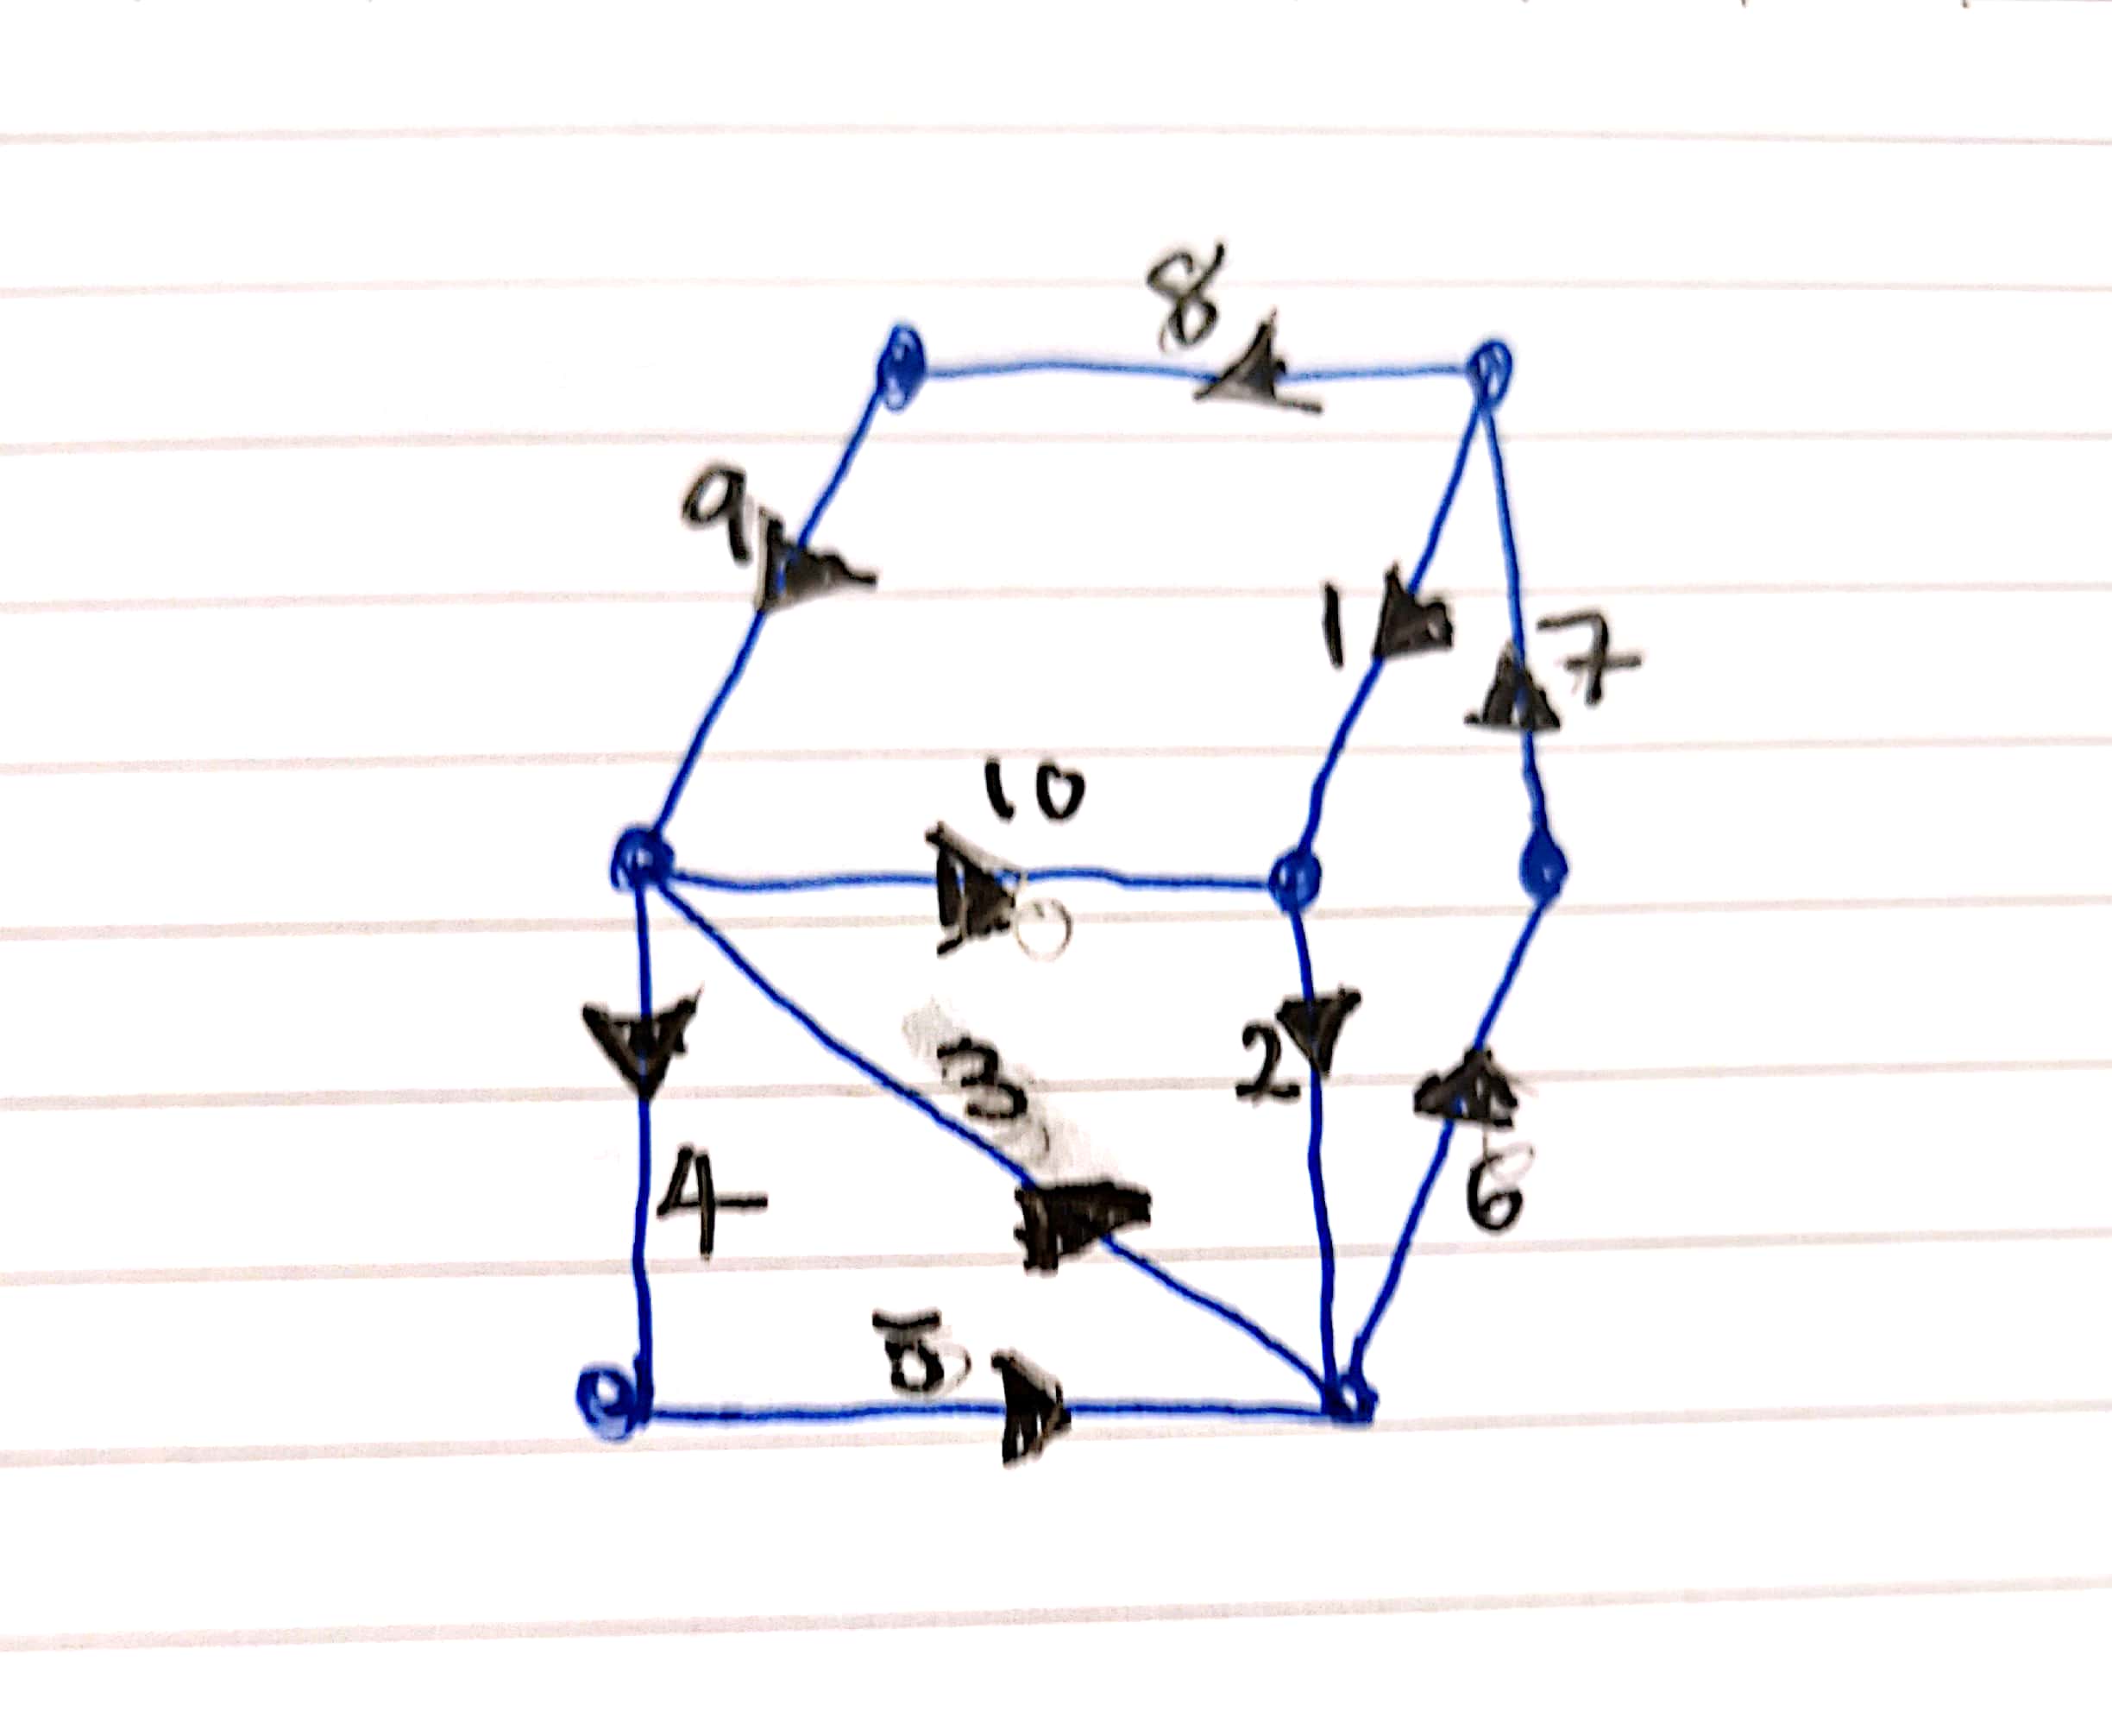 8
9
1
7
10
3
2
4
6
5